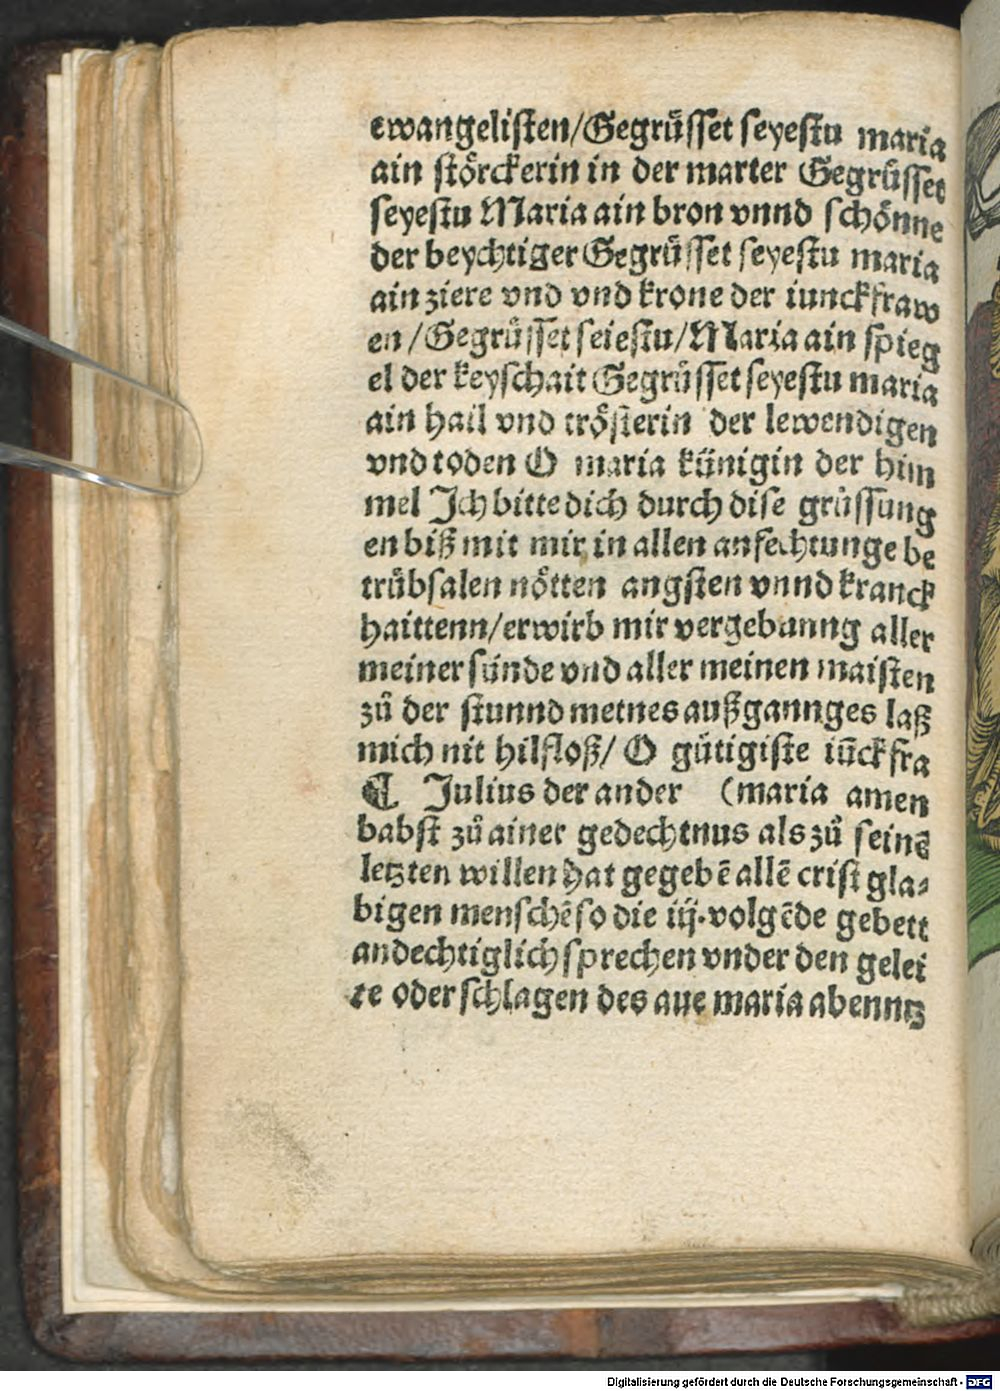 ewangelisten/Gegrůsset seyestu maria
ain störckerin in der marter Gegrůsset
seyestu Maria ain bron vnnd schönne
der beychtiger Gegrůsset seyestu maria
ain ziere vnd vnd krone der iunckfraw
en/Gegrůsset seiestu/Maria ain spieg
el der keyschait Gegrůsset seyestu maria
ain hail vnd trösterin der lewendigen
vnd toden O maria künigin der him
mel Ich bitte dich durch dise grůssung
en biß mit mir in allen anfechtunge be
trůbsalen nötten angsten vnnd kranck
haittenn/erwirb mir vergebunng aller
meiner sünde vnd aller meinen maisten
zů der stunnd meines außgannges laß
mich nit hilfloß/ O gütigiste iūckfra
¶ Julius der ander (maria amen
babst zů ainer gedechtnus als zů seinē
letzten willen hat gegebē allē crist gla⸗
bigen menschē so die iij.volgēde gebett
andechtiglich sprechen vnder den gelei
te oder schlagen des aue maria abenntz
Digitalisierung gefördert durch die Deutsche Forschungsgemeinschaft - DFG